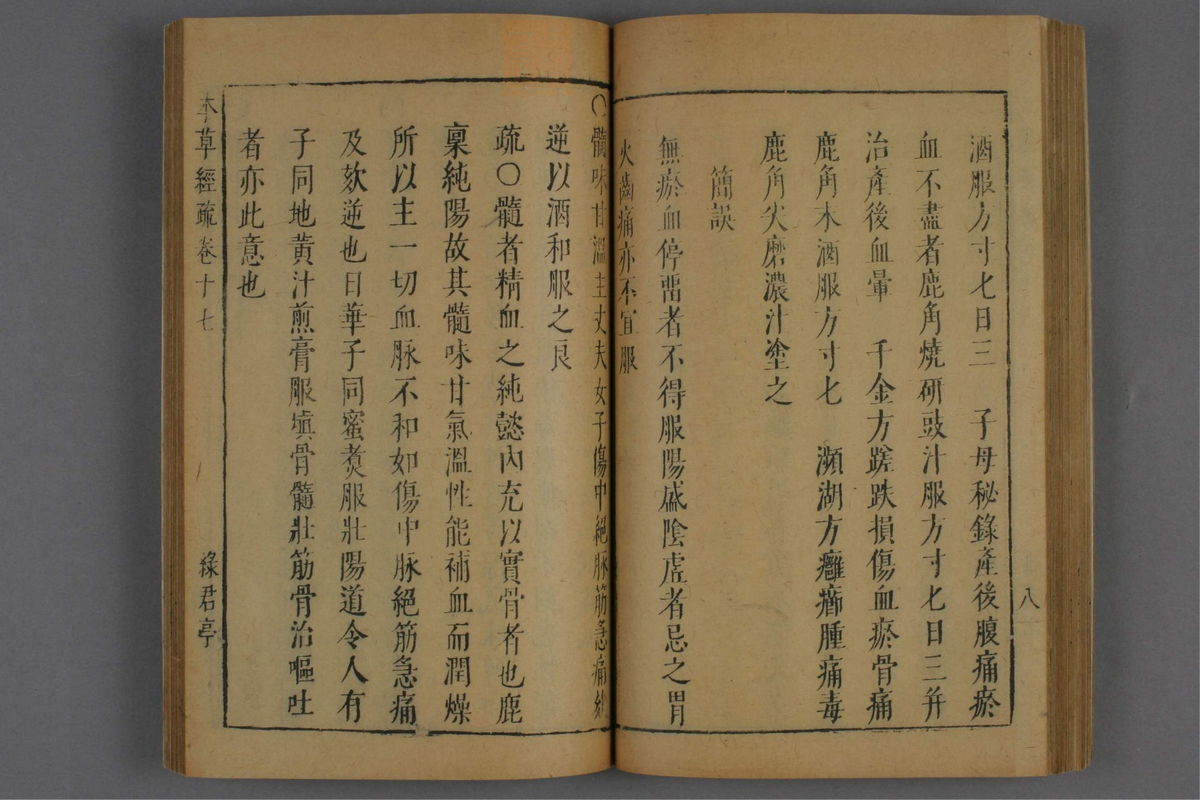 八
酒服方寸匕日三　子母秘錄產後腹痛瘀
血不盡者鹿角燒研豉汁服方寸匕日三并
治產後血暈　千金方蹉跌損傷血瘀骨痛
鹿角末酒服方寸匕　瀕湖方癰癤腫痛毒
鹿角尖磨濃汁塗之
簡誤
無瘀血停畱者不得服陽盛陰虛者忌之胃
火齒痛亦不宜服
○髓味甘溫主丈夫女子傷中絕脉筋急痛
逆以酒和服之良
疏○髓者精血之純懿內充以實骨者也鹿
稟純陽故其髓味甘氣溫性能補血而潤燥
所以主一切血脉不和如傷中脉絕筋急痛
及欬逆也日華子同蜜煑服壯陽道令人有
子同地黃汁煎膏服塡骨髓壯筋骨治嘔吐
者亦此意也
本草經疏卷十七　綠君亭